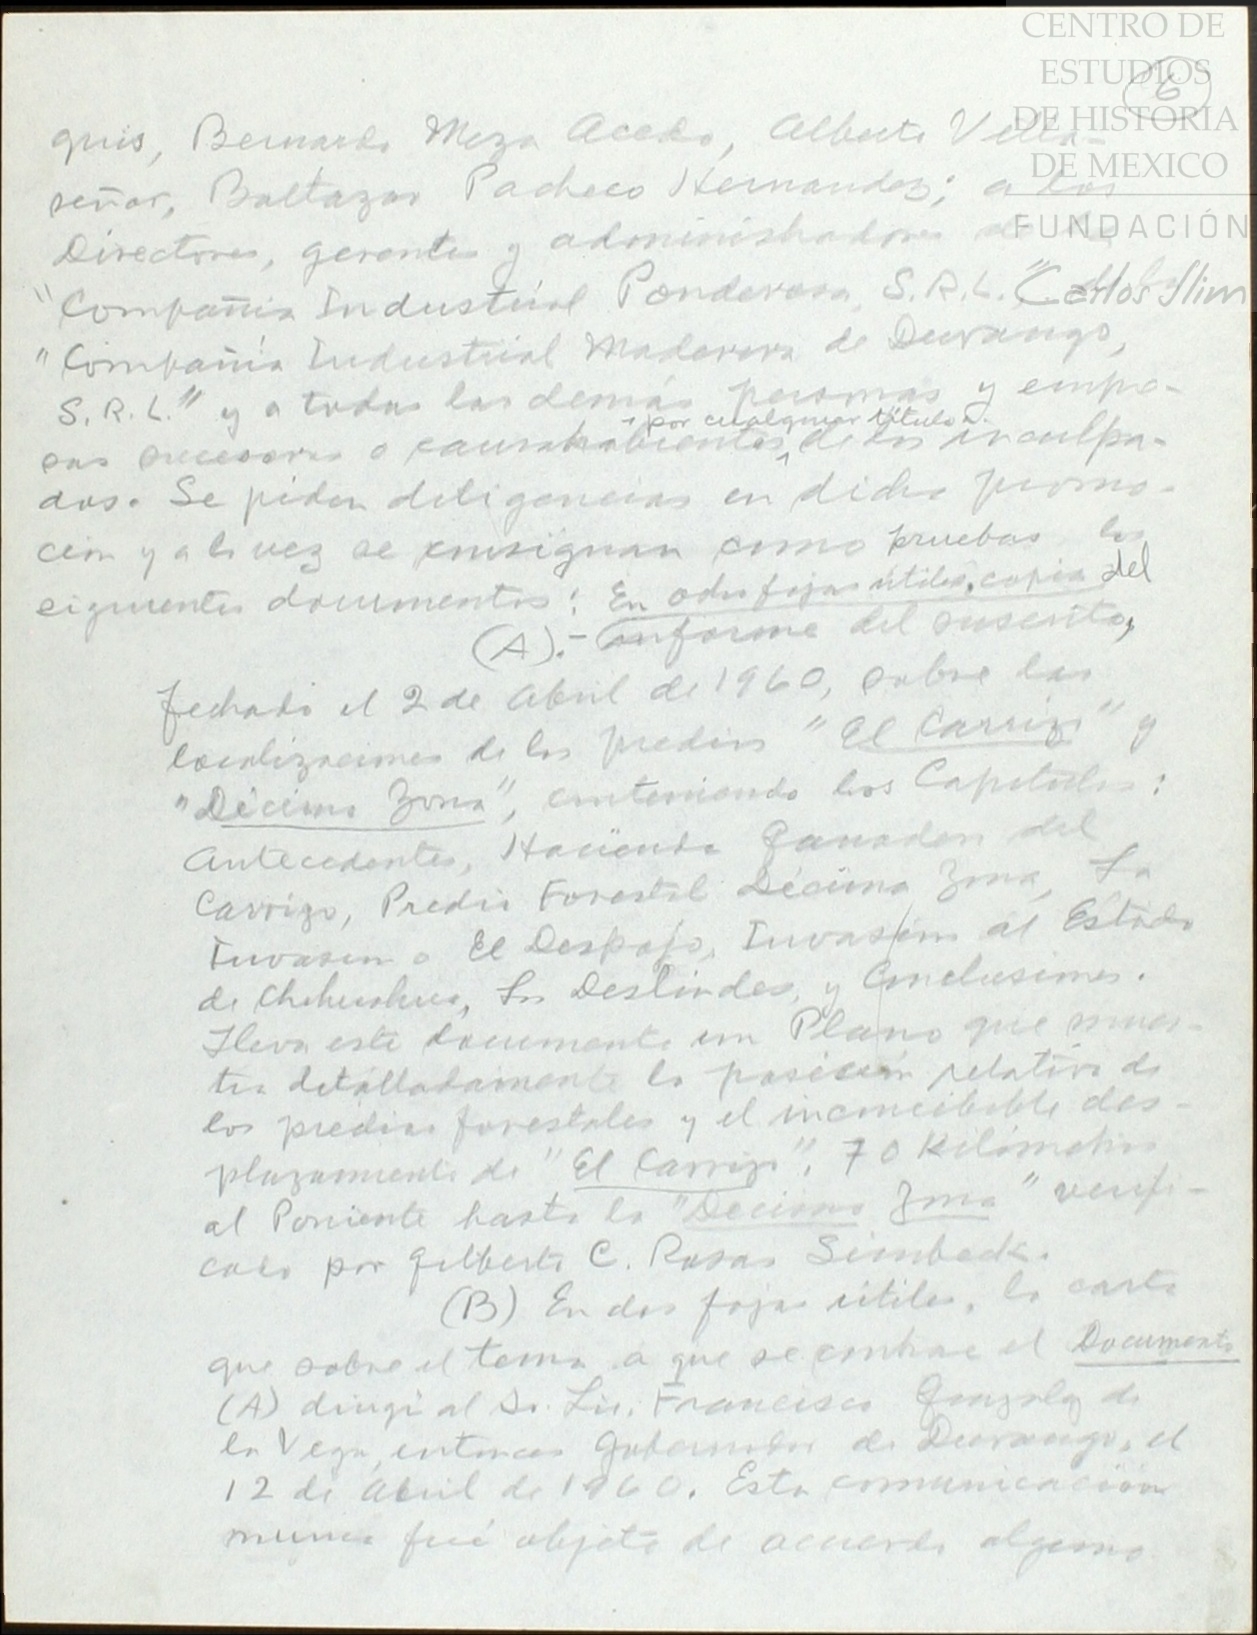 CENTRO DE
ESTUDIOS
DE HISTORIA
DE MEXICO
FUNDACIÓN
Carlos Slim
6
quis, Bernardo Meza Acedo, Alberto Villa-
señor, Baltazar Pacheco Hernandez; a los
Directores, gerentes y administradores de la
"Compañia Industrial Ponderosa, S.R.L."
"Compañia Industrial Maderera de Durango,
S.R.L." y a todas las demás personas y empre-
por cualquier título
sas sucesoras o causahabientes, de los inculpa-
dos. Se piden diligencias en dicha promo-
ción y a la vez se consignan como pruebas los
siguientes documentos: En ocho fojas útiles, copia del
(A).- Informe del suscrito,
fechado el 2 de Abril de 1960, sobre las
localizaciones de los predios "El Carrizo" y
"Décima Zona", conteniendo los Capítulos:
Antecedentes, Hacienda Ganadera del
Carrizo, Predio Forestal Décima Zona, La
Invasión o El Despojo, Invasión al Estado
de Chihuahua, Los Deslindes, y Conclusiones.
Lleva este documento un Plano que mues-
tra detalladamente la posición relativa de
los predios forestales y el inconcebible des-
plazamiento de "El Carrizo", 70 Kilómetros
al Poniente hasta la "Decima Zona" verifi-
cado por Gilberto C. Rosas Simbeck.
(B) En dos fojas útiles, la carta
que sobre el tema a que se contrae el Documento
(A) dirigí al Sr. Lic. Francisco González de
la Vega, entonces Gobernador de Durango, el
12 de Abril de 1960. Esta comunicación
nunca fué objeto de acuerdo alguno